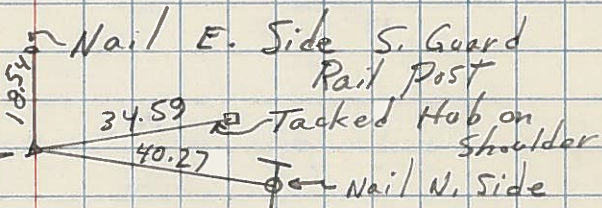 Nail E. Side S. Guard
Rail Post
18.54
34.59
Tacked Hub on
Shoulder
40.27
Nail N. Side